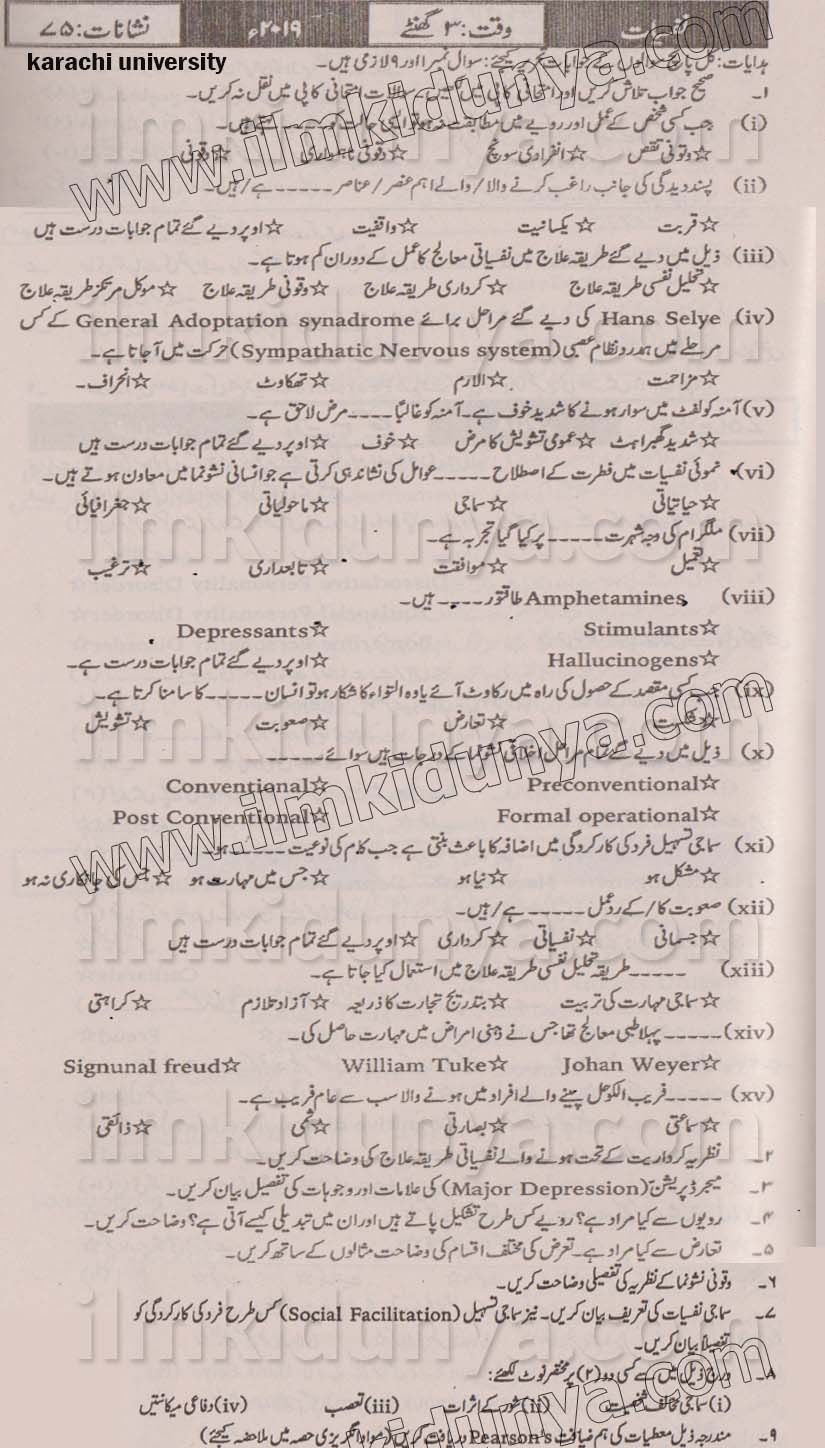 نفسیات وقت: ۳ گھنٹے ۲۰۱۹ء نشانات: ۷۵
karachi university
ہدایات: کل پانچ سوالوں کے جوابات تحریر کیجئے: سوال نمبر ۱ اور ۹ لازمی ہیں۔
۱۔ صحیح جواب تلاش کریں اور امتحانی کاپی میں لکھیں۔ سوالات امتحانی کاپی میں نقل نہ کریں۔
(i) جب کسی شخص کے عمل اور رویے میں مطابقت نہ ہو تو ایسی حالت کو ۔۔۔۔۔ کہتے ہیں۔
☆وقوفی نقص ☆انفرادی سوچ ☆وقوفی ناہمواری ☆وقوفی
(ii) پسندیدگی کی جانب راغب کرنے والا/والے اہم عنصر/عناصر ۔۔۔۔۔ ہے/ہیں۔
☆قربت ☆یکسانیت ☆واقفیت ☆اوپر دیے گئے تمام جوابات درست ہیں
(iii) ذیل میں دیے گئے طریقہ علاج میں نفسیاتی معالج کا عمل کے دوران کم ہوتا ہے۔
☆تحلیل نفسی طریقہ علاج ☆کرداری طریقہ علاج ☆وقوفی طریقہ علاج ☆موکل مرتکز طریقہ علاج
(iv) Hans Selye کی دیے گئے مراحل برائے General Adoptation synadrome کے کس
مرحلے میں ہمدرد نظام عصبی (Sympathatic Nervous system) حرکت میں آجاتا ہے۔
☆مزاحمت ☆الارم ☆تھکاوٹ ☆انحراف۔
(v) آمنہ کو لفٹ میں سوار ہونے کا شدید خوف ہے۔ آمنہ کو غالباً ۔۔۔۔ مرض لاحق ہے۔
☆شدید گھبراہٹ ☆عمومی تشویش کا مرض ☆خوف ☆اوپر دیے گئے تمام جوابات درست ہیں
(vi) نموئی نفسیات میں فطرت کے اصطلاح ۔۔۔۔۔ عوامل کی نشاندہی کرتی ہے جو انسانی نشوونما میں معاون ہوتے ہیں۔
☆حیاتیاتی ☆سماجی ☆ماحولیاتی ☆جغرافیائی
(vii) ملگرام کی وجہ شہرت ۔۔۔۔۔ پر کیا گیا تجربہ ہے۔
☆تعمیل ☆موافقت ☆تابعداری ☆ترغیب
(viii) Amphetamines طاقتور ۔۔۔۔ ہیں۔
☆Stimulants ☆Depressants
☆Hallucinogens ☆اوپر دیے گئے تمام جوابات درست ہے۔
(ix) جب کسی مقصد کے حصول کی راہ میں رکاوٹ آئے یا وہ التواء کا شکار ہو تو انسان ۔۔۔۔۔ کا سامنا کرتا ہے۔
☆شکست ☆تعارض ☆صعوبت ☆تشویش
(x) ذیل میں دیے گئے تمام مراحل اخلاقی نشوونما کے درجات ہیں سوائے ۔۔۔۔۔
☆Preconventional ☆Conventional
☆Formal operational ☆Post Conventional
(xi) سماجی تسہیل فرد کی کارکردگی میں اضافہ کا باعث بنتی ہے جب کام کی نوعیت ۔۔۔۔۔ ہو۔
☆مشکل ہو ☆نیا ہو ☆جس میں مہارت ہو ☆جس کی جانکاری نہ ہو
(xii) صعوبت کا/کے ردعمل ۔۔۔۔۔ ہے/ہیں۔
☆جسمانی ☆نفسیاتی ☆کرداری ☆اوپر دیے گئے تمام جوابات درست ہیں
(xiii) ۔۔۔۔۔ طریقہ تحلیل نفسی طریقہ علاج میں استعمال کیا جاتا ہے۔
☆سماجی مہارت کی تربیت ☆بتدریج تجارت کا ذریعہ ☆آزاد تلازم ☆کراہتی
(xiv) ۔۔۔۔۔ پہلا طبی معالج تھا جس نے ذہنی امراض میں مہارت حاصل کی۔
☆Johan Weyer ☆William Tuke ☆Signunal freud
(xv) ۔۔۔۔۔ فریب الکوحل پینے والے افراد میں ہونے والا سب سے عام فریب ہے۔
☆سماعتی ☆بصارتی ☆شمی ☆ذائقی
۲۔ نظریہ کرداریت کے تحت ہونے والے نفسیاتی طریقہ علاج کی وضاحت کریں۔
۳۔ میجر ڈپریشن (Major Depression) کی علامات اور وجوہات کی تفصیل بیان کریں۔
۴۔ رویوں سے کیا مراد ہے؟ رویے کس طرح تشکیل پاتے ہیں اور ان میں تبدیلی کیسے آتی ہے؟ وضاحت کریں۔
۵۔ تعارض سے کیا مراد ہے۔ تعرض کی مختلف اقسام کی وضاحت مثالوں کے ساتھ کریں۔
۶۔ وقوفی نشوونما کے نظریہ کی تفصیلی وضاحت کریں۔
۷۔ سماجی نفسیات کی تعریف بیان کریں۔ نیز سماجی تسہیل (Social Facilitation) کس طرح فرد کی کارکردگی کو
تفصیلاً بیان کریں۔
۸۔ درج ذیل میں سے کسی دو (۲) پر مختصر نوٹ لکھئے:
(i) سماجی مخالف شخصیت (ii) شور کے اثرات (iii) تعصب (iv) دفاعی میکانتیں
۹۔ مندرجہ ذیل معطیات کی ہم ضیافت Pearson's دریافت کریں (مواد انگریزی حصہ میں ملاحظہ کیجئے)
www.ilmkidunya.com
www.ilmkidunya.com
www.ilmkidunya.com